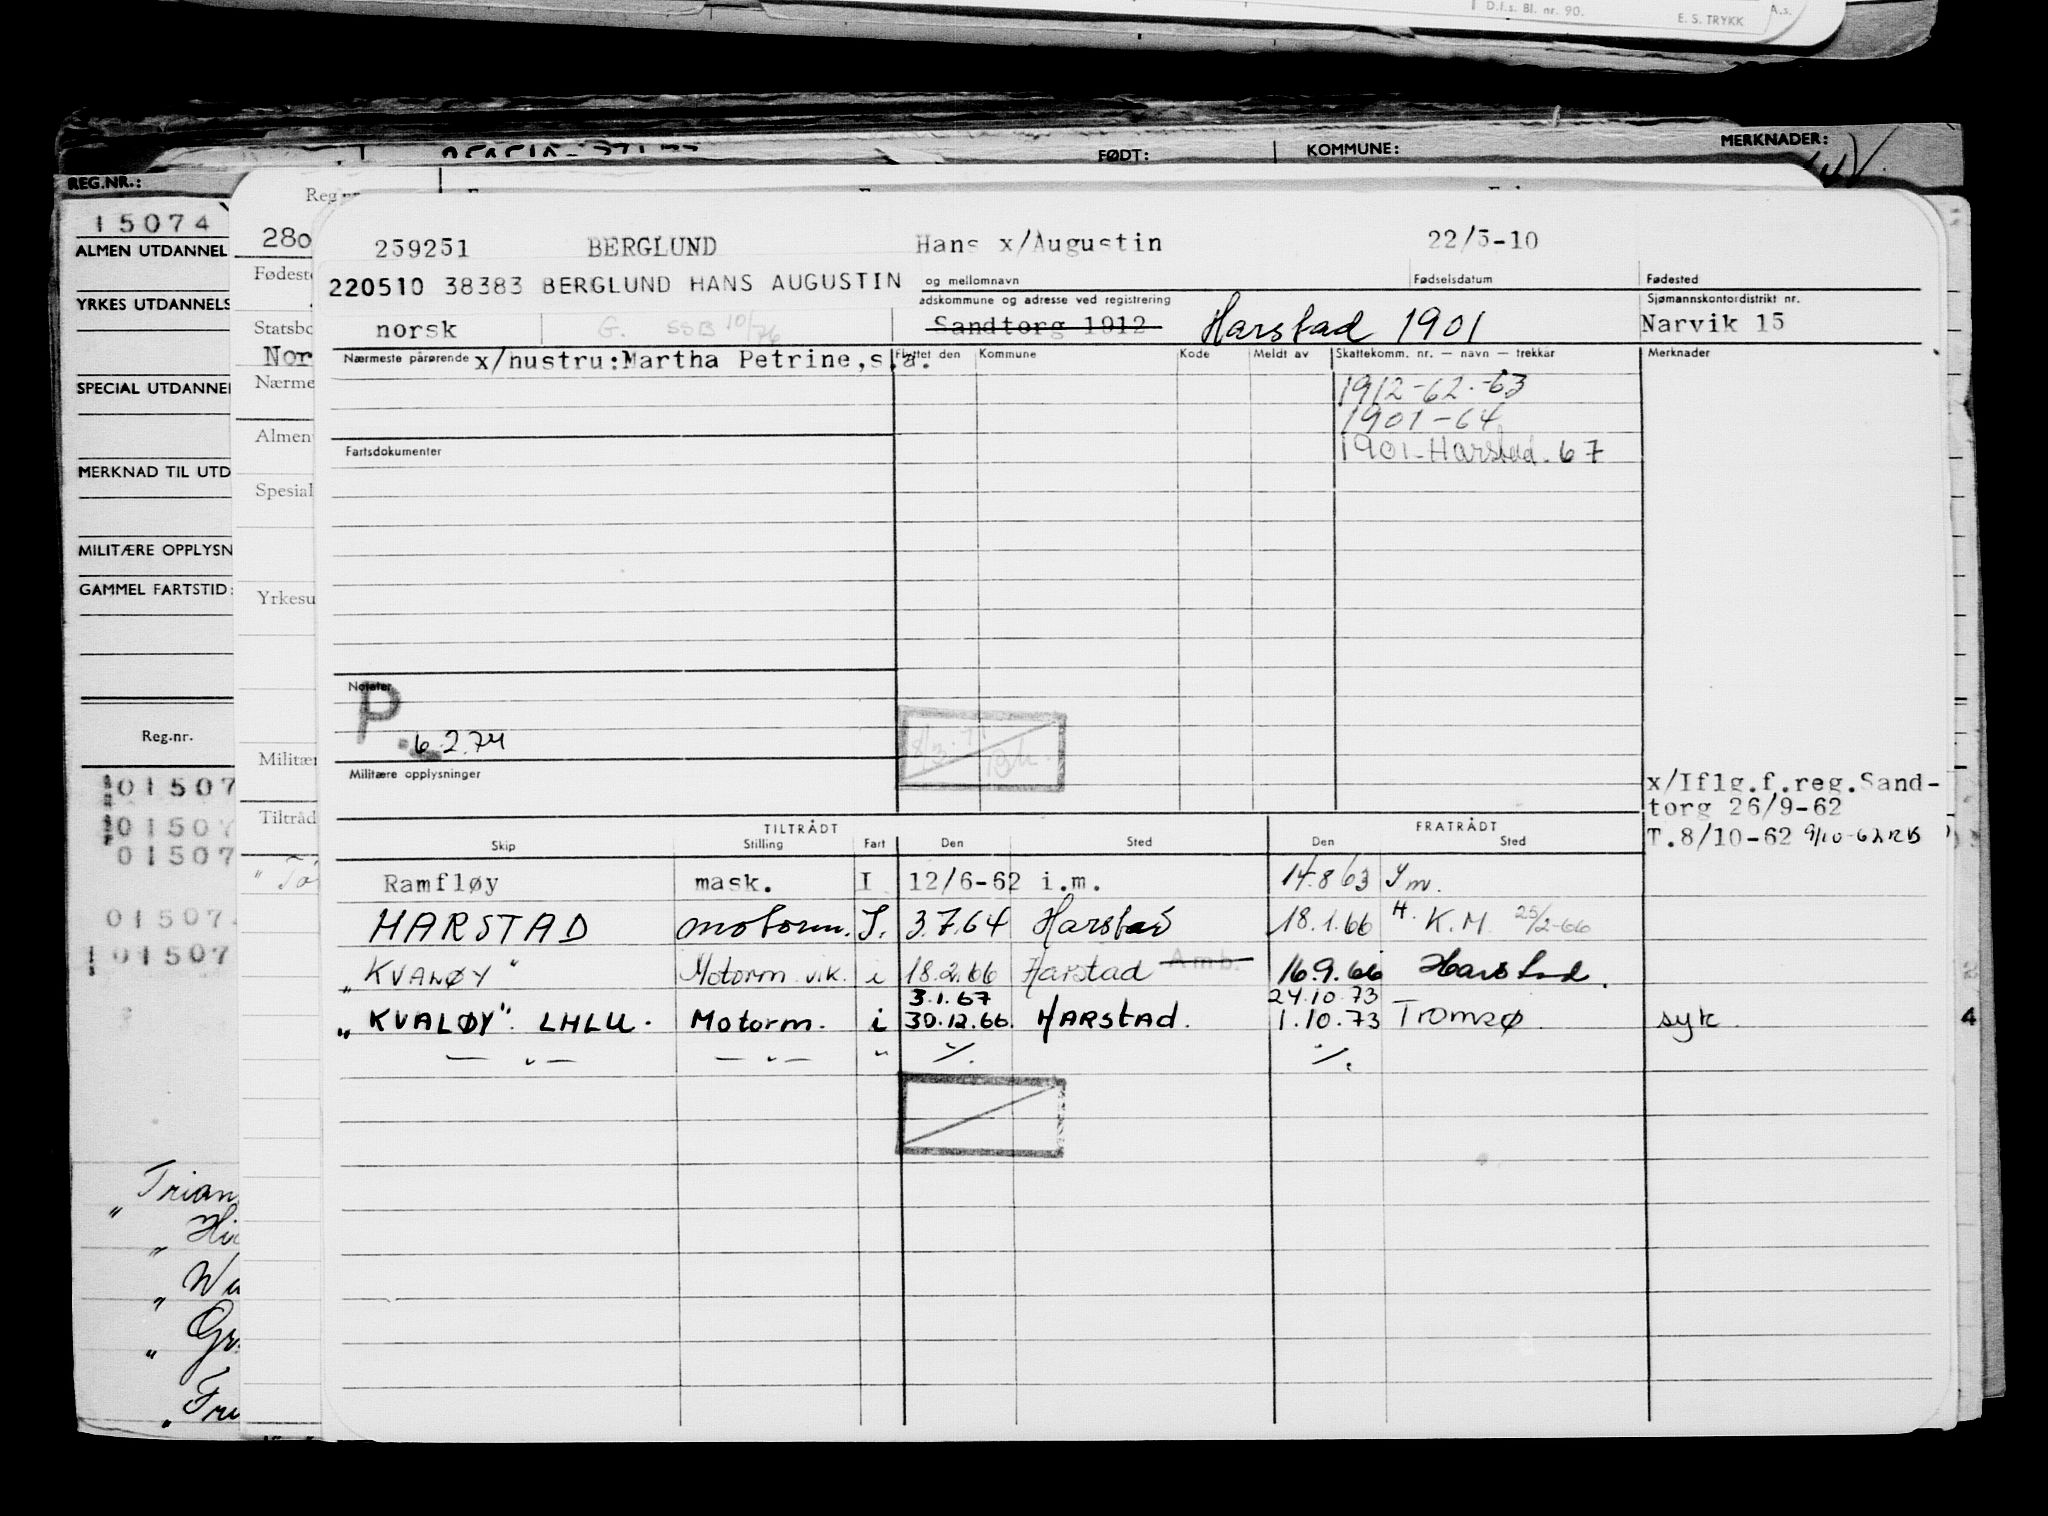 D.f.s. Bl. nr. 90.
E. S. TRYKK A.s.
FØDT: KOMMUNE: MERKNADER:
REG.NR.:
15074
ALMEN UTDANNEL
YRKES UTDANNELS
SPECIAL UTDANNEL
MERKNAD TIL UTD
MILITÆRE OPPLYSN
GAMMEL FARTSTID:
Reg.nr.
01507
01507
01507
01507
01507
Trian
Hi
Wa
Gr
Fri
Reg.nr
280
Fødeste
Statsbo
Nor
Nærme
Almen
Spesial
Yrkesu
Militær
Tiltråd
259251 BERGLUND Hans x/Augustin 22/5-10
220510 38383 BERGLUND HANS AUGUSTIN og mellomnavn Fødselsdatum Fødested
dskommune og adresse ved registrering Sjømannskontordistrikt nr.
norsk G. SSB 10/76 Sandtorg 1912 Harstad 1901 Narvik 15
Nærmeste pårørende x/hustru:Martha Petrine,s.a. Flyttet den Kommune Kode Meldt av Skattekomm. nr. — navn — trekkår Merknader
1912-62.-63
1901-64
1901-Harstad-67
Fartsdokumenter
Notater
P
6.2.74
Militære opplysninger
x/Iflg.f.reg.Sand-
torg 26/9-62
T.8/10-62 9/10-62 RB
TILTRÅDT FRATRÅDT
Skip Stilling Fart Den Sted Den Sted
Ramfløy mask. I 12/6-62 i.m. 14.8 63 Im.
HARSTAD motorm. I. 3.7.64 Harstad 18.1.66 H. K.M. 25/2-66
"KVALØY" Motorm vik. i 18.2.66 Harstad Amb. 16.9.66 Harstad.
3.1.67 24.10.73
"KVALØY". LHLU. Motorm. i 30.12.66. HARSTAD. 1.10.73 Tromsø syk. 4
— " — — " — " ·/. ·/.